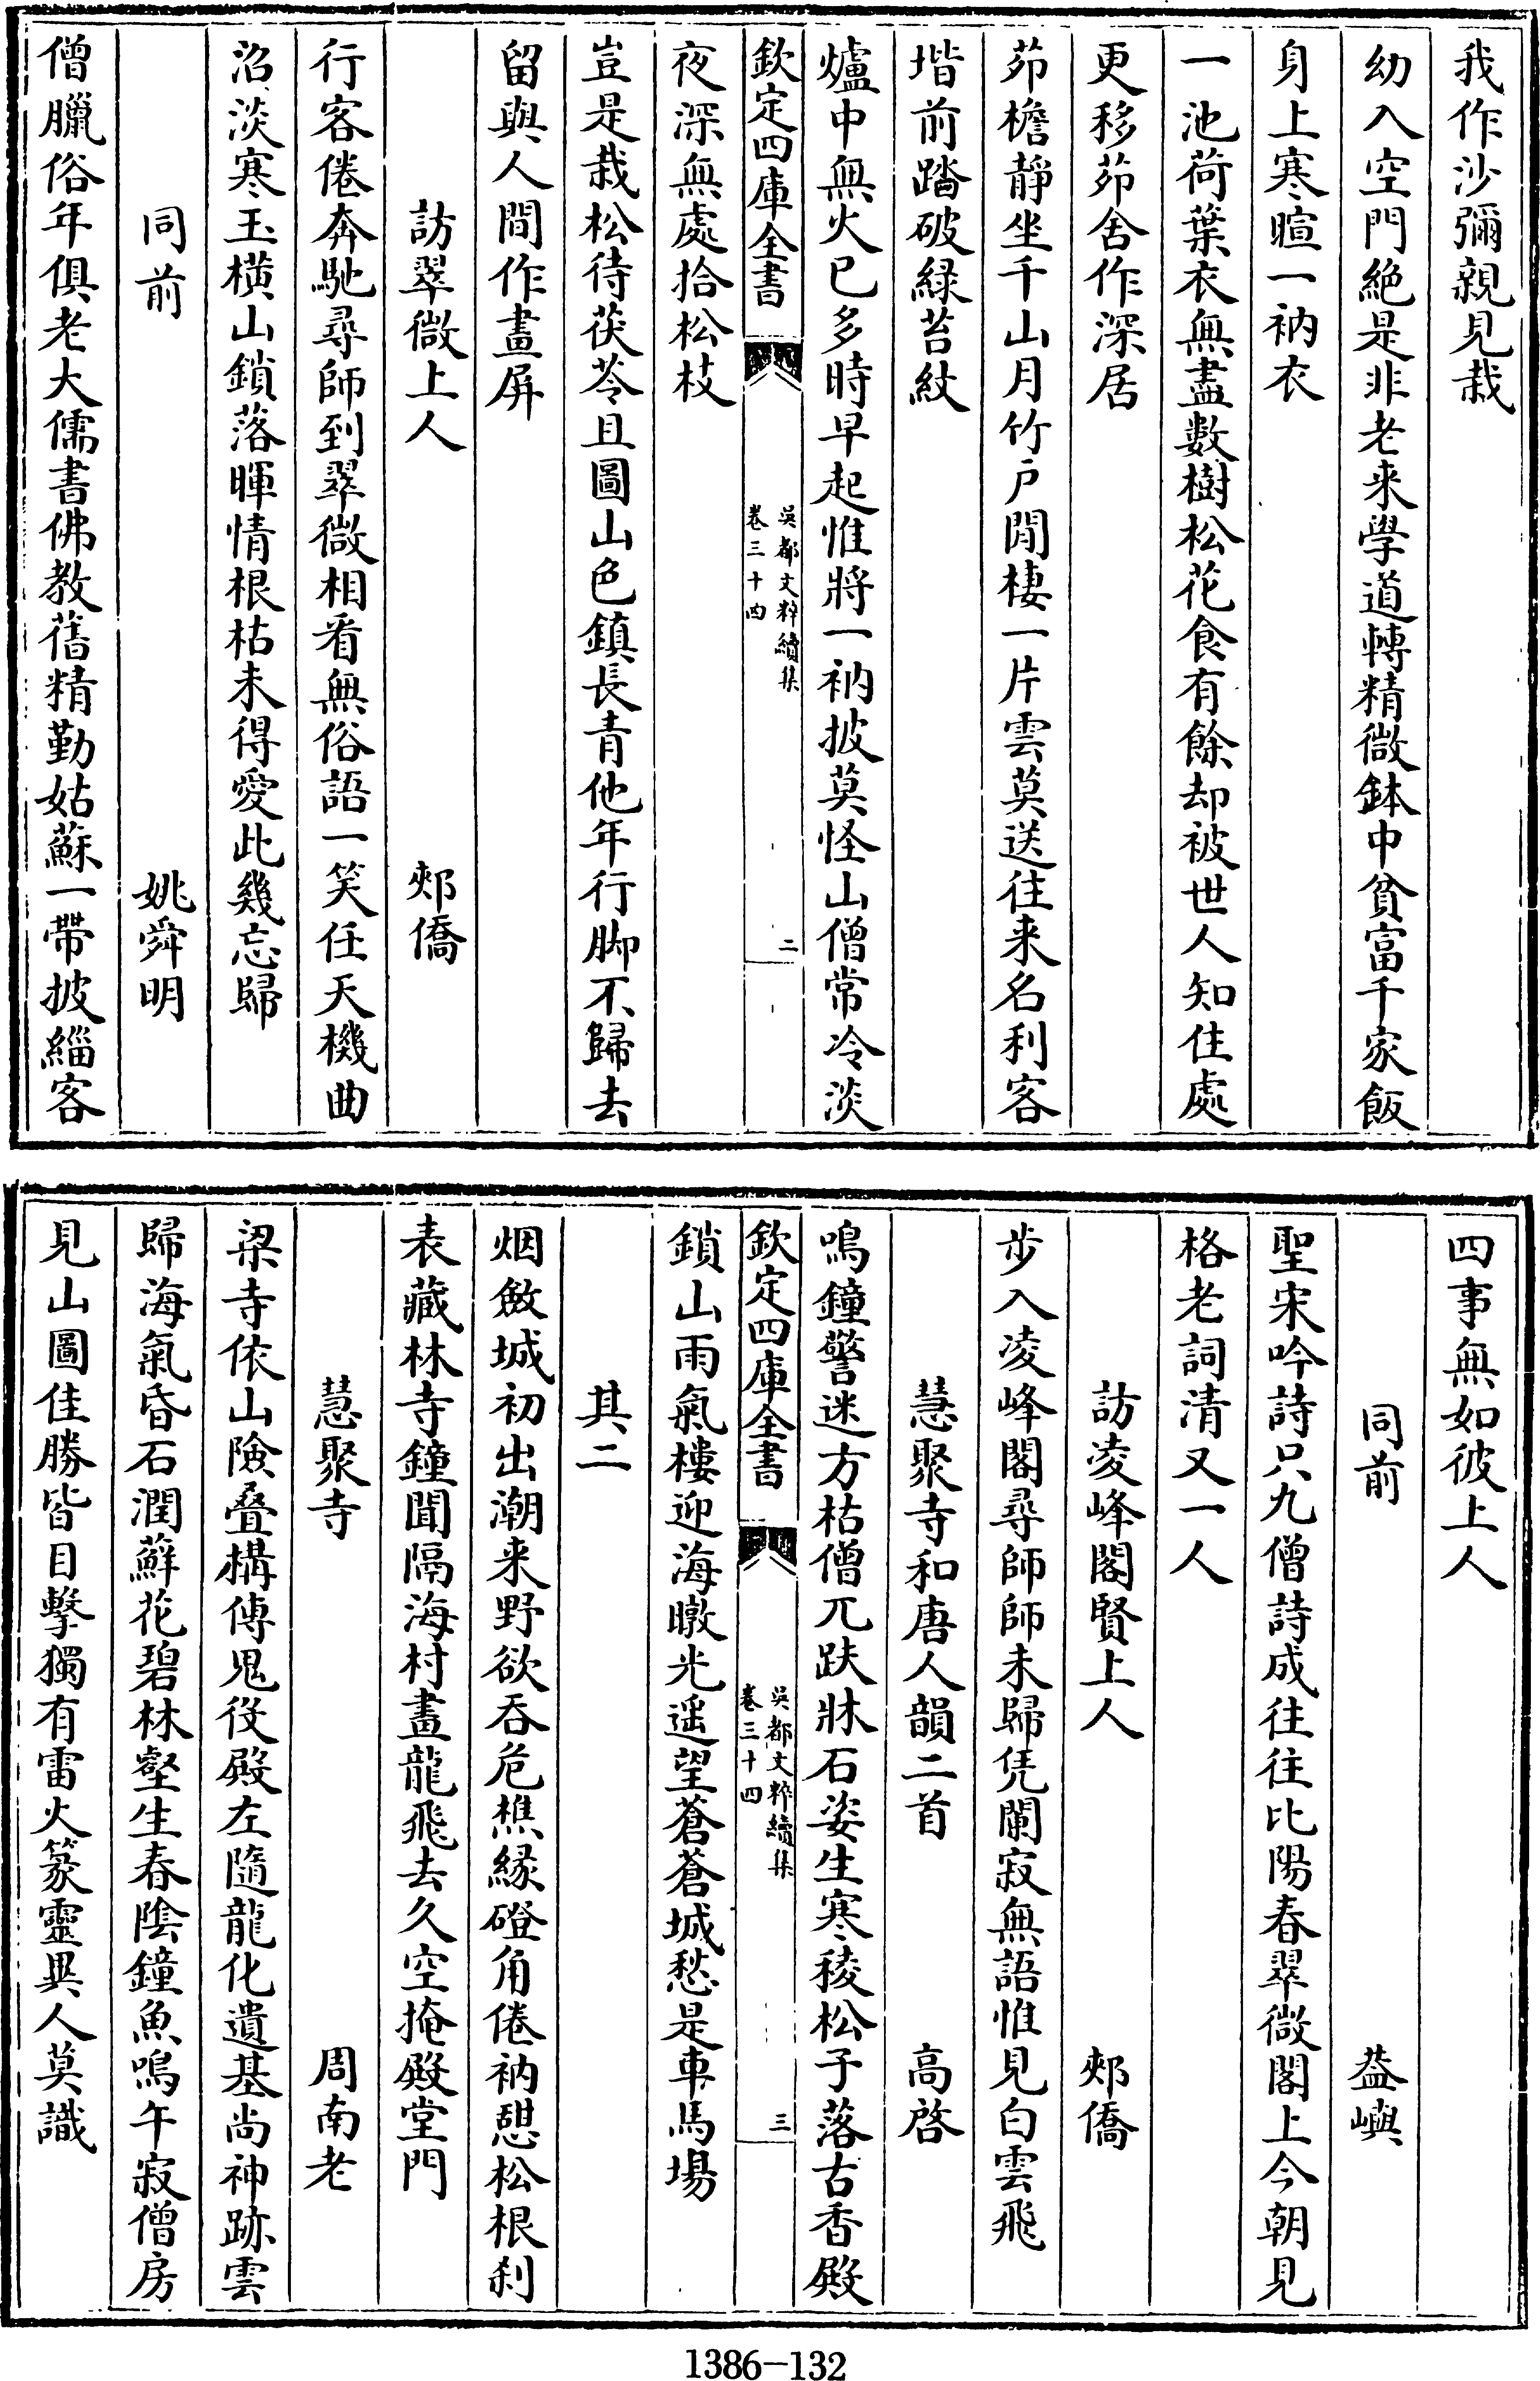 我作沙彌親見栽
幼入空門絶是非老来學道轉精微鉢中貧富千家飯
身上寒暄一衲衣
一池荷葉衣無盡數樹松花食有餘却被世人知住處
更移茆舍作深居
茆檐靜坐千山月竹户閒棲一片雲莫送往来名利客
堦前踏破緑苔紋
爐中無火已多時早起惟將一衲披莫怪山僧常冷淡
欽定四庫全書
吳都文粹續集
卷三十四
二
夜深無處拾松枝
豈是栽松待茯苓且圖山色鎮長青他年行脚不歸去
留與人間作畫屏
訪翠微上人 郟僑
行客倦奔馳尋師到翠微相看無俗語一笑任天機曲
沼淡寒玉横山鎖落暉情根枯未得愛此幾忘歸
同前 姚舜明
僧臘俗年俱老大儒書佛教舊精勤姑蘇一帶披緇客
四事無如彼上人
同前 益嶼
聖宋吟詩只九僧詩成往往比陽春翠微閣上今朝見
格老詞清又一人
訪凌峰閣賢上人 郟僑
步入凌峰閣尋師師未歸凭闌寂無語惟見白雲飛
慧聚寺和唐人韻二首 高啓
鳴鐘警迷方枯僧兀趺牀石姿生寒稜松子落古香殿
欽定四庫全書
吳都文粹續集
卷三十四
三
鎖山雨氣樓迎海暾光遥望蒼蒼城愁是車馬場
其二
烟斂城初出潮来野欲吞危樵縁磴角倦衲憇松根刹
表藏林寺鐘聞隔海村畫龍飛去久空掩殿堂門
慧聚寺 周南老
梁寺依山險叠構傳鬼役殿左隨龍化遺基尚神跡雲
歸海氣昏石潤蘚花碧林壑生春陰鐘魚鳴午寂僧房
見山圖佳勝皆目擊獨有雷火篆靈異人莫識
1386-132